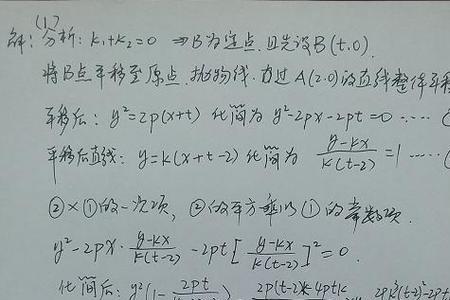 (1)
解: 分析: k₁+k₂=0 ⇒ B为定点, 且先设 B(t,0).
将B点平移至原点, 抛物线, 过 A(2,0) 的直线整体平移
平移后: y²=2p(x+t) 化简为 y²-2px-2pt=0 ……
平移后直线: y=k(x+t-2) 化简为 \frac{y-kx}{k(t-2)}=1 ……
②×①的一次项, ②的平方乘以①的常数项.
y²-2px·\frac{y-kx}{k(t-2)} -2pt[\frac{y-kx}{k(t-2)}]²=0.
化简后: y²(1-\frac{2pt}